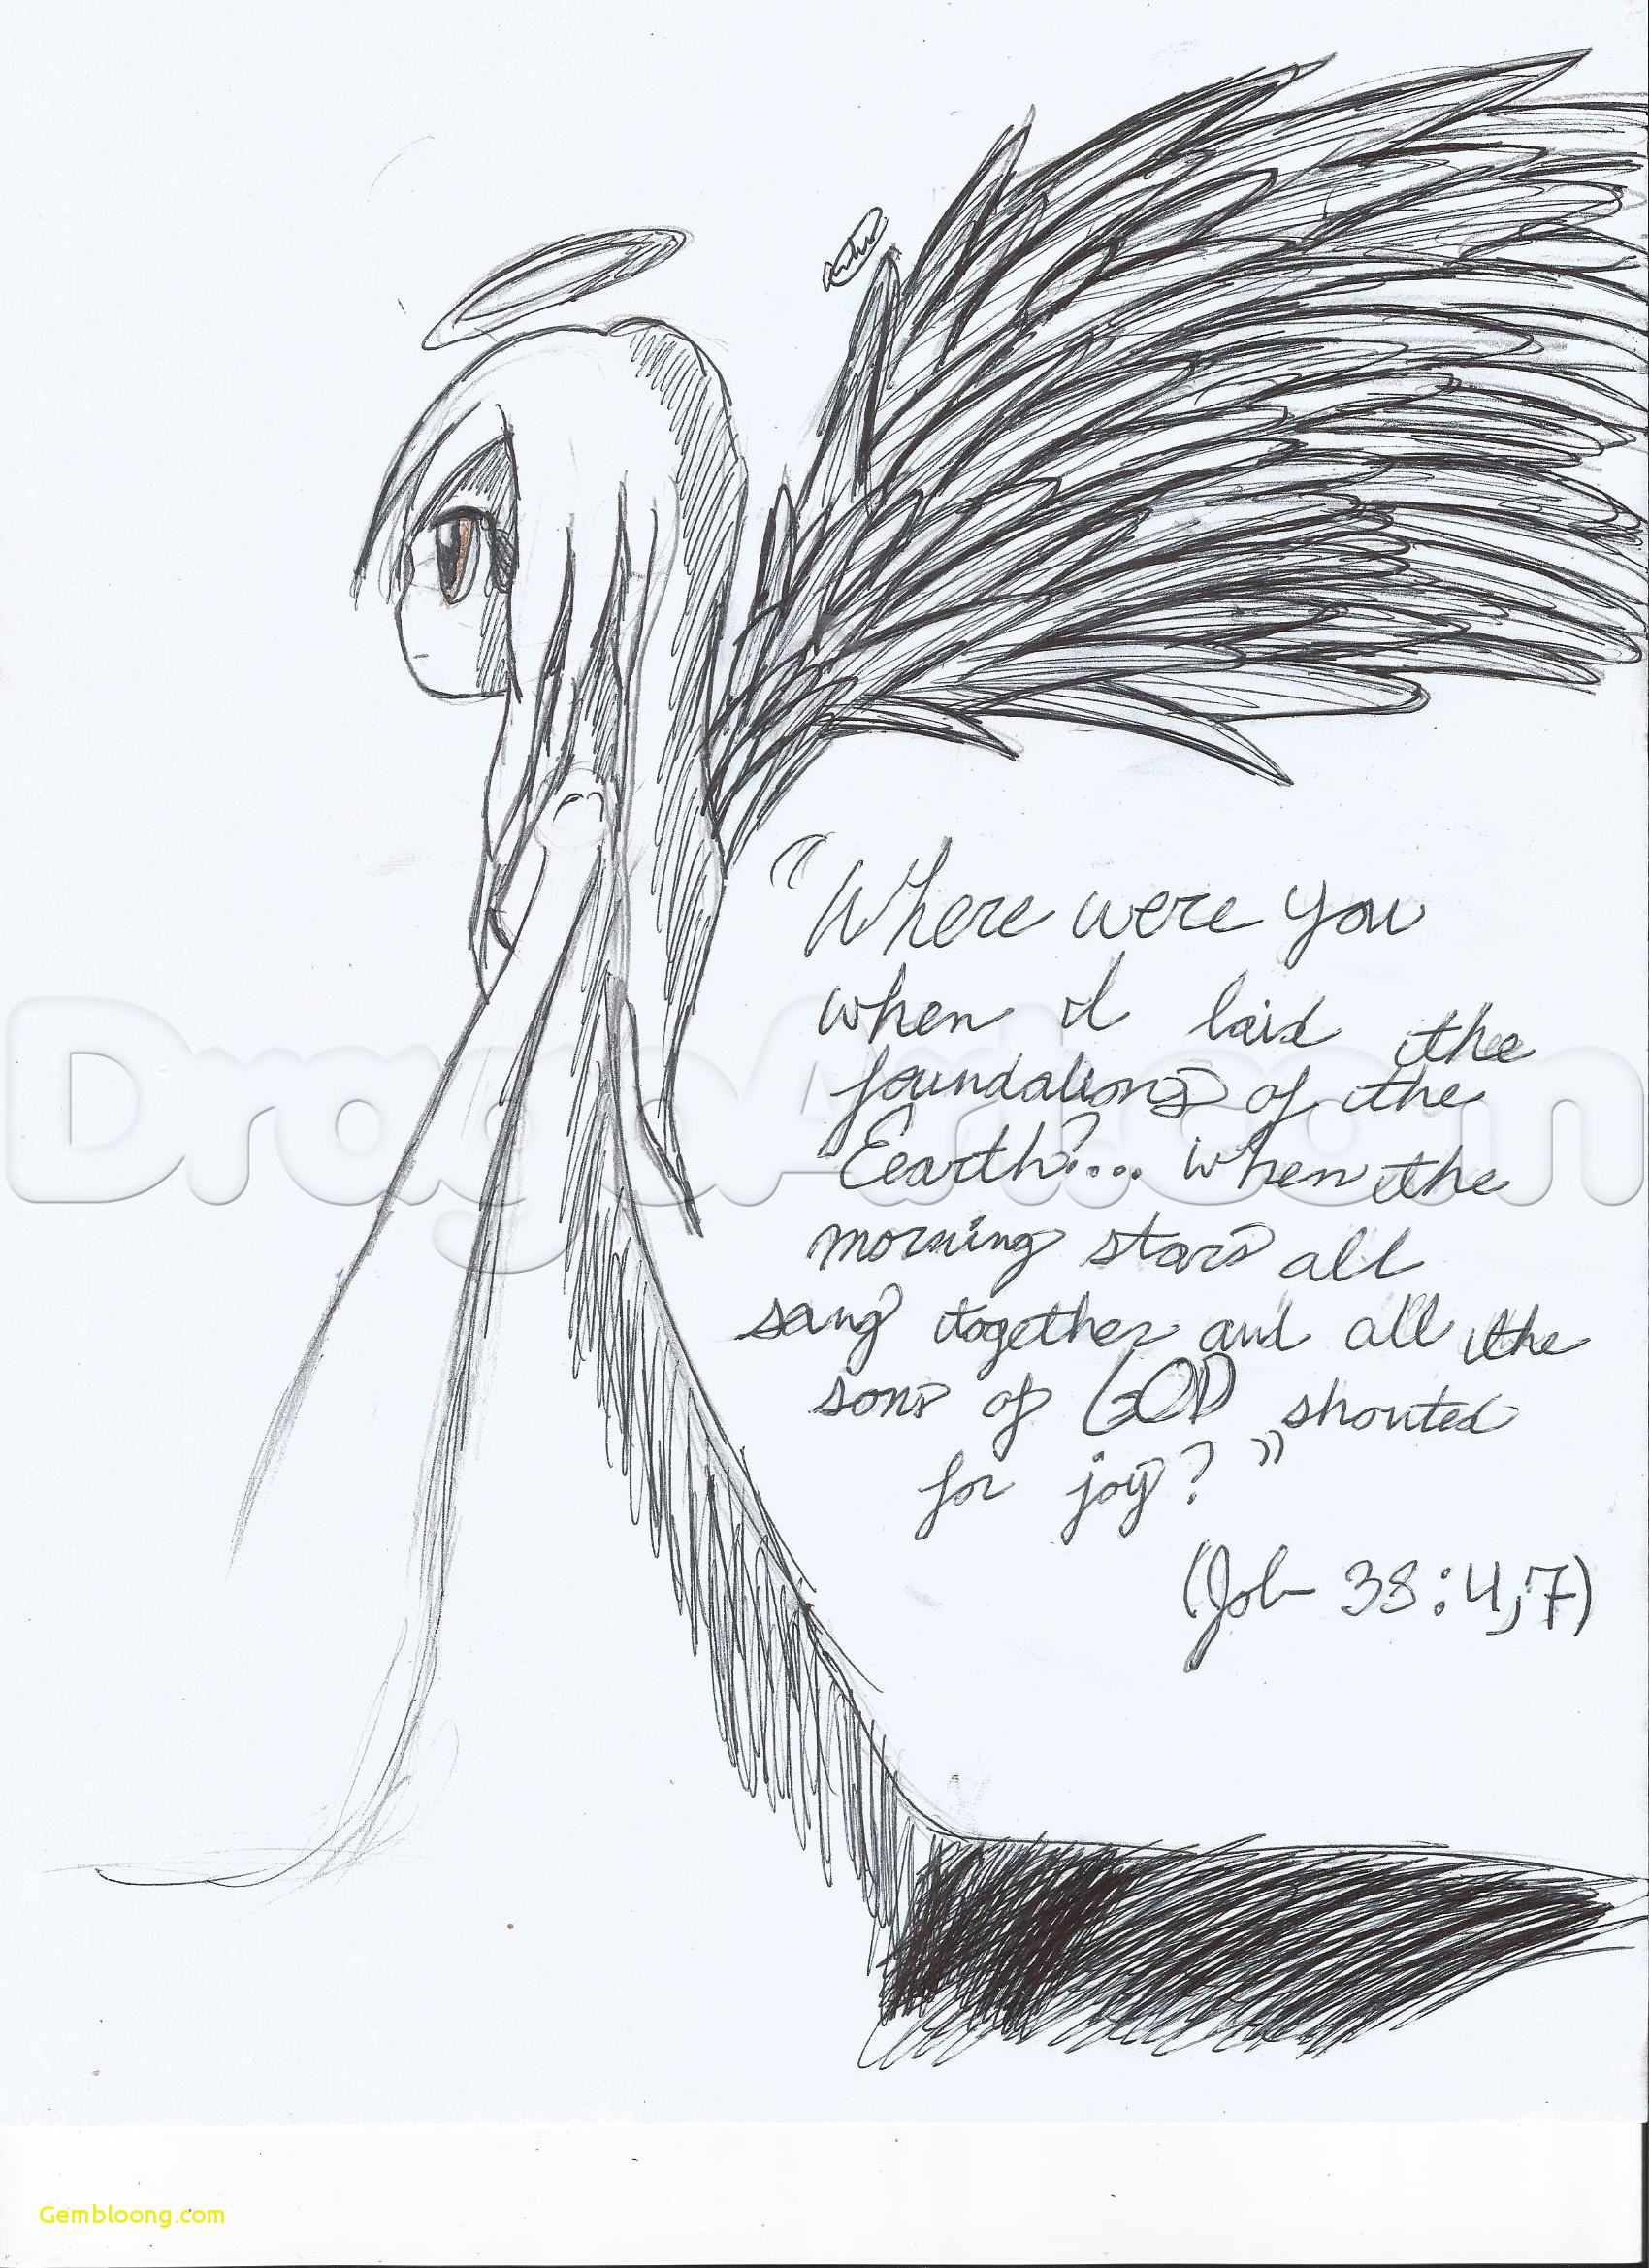 "Where were you
when I laid the
foundations of the
Eearth?... when the
morning stars all
sang together and all the
sons of GOD shouted
for joy?"
(Job 38:4,7)
DragoArt.com
Gembloong.com